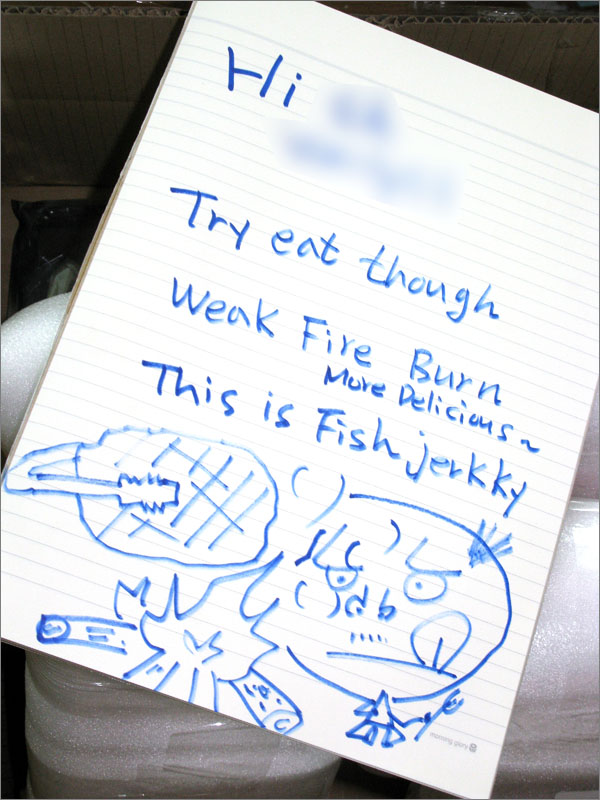 Hi
Try eat though
Weak Fire Burn
More Delicious~
This is Fish jerkky
morning glory